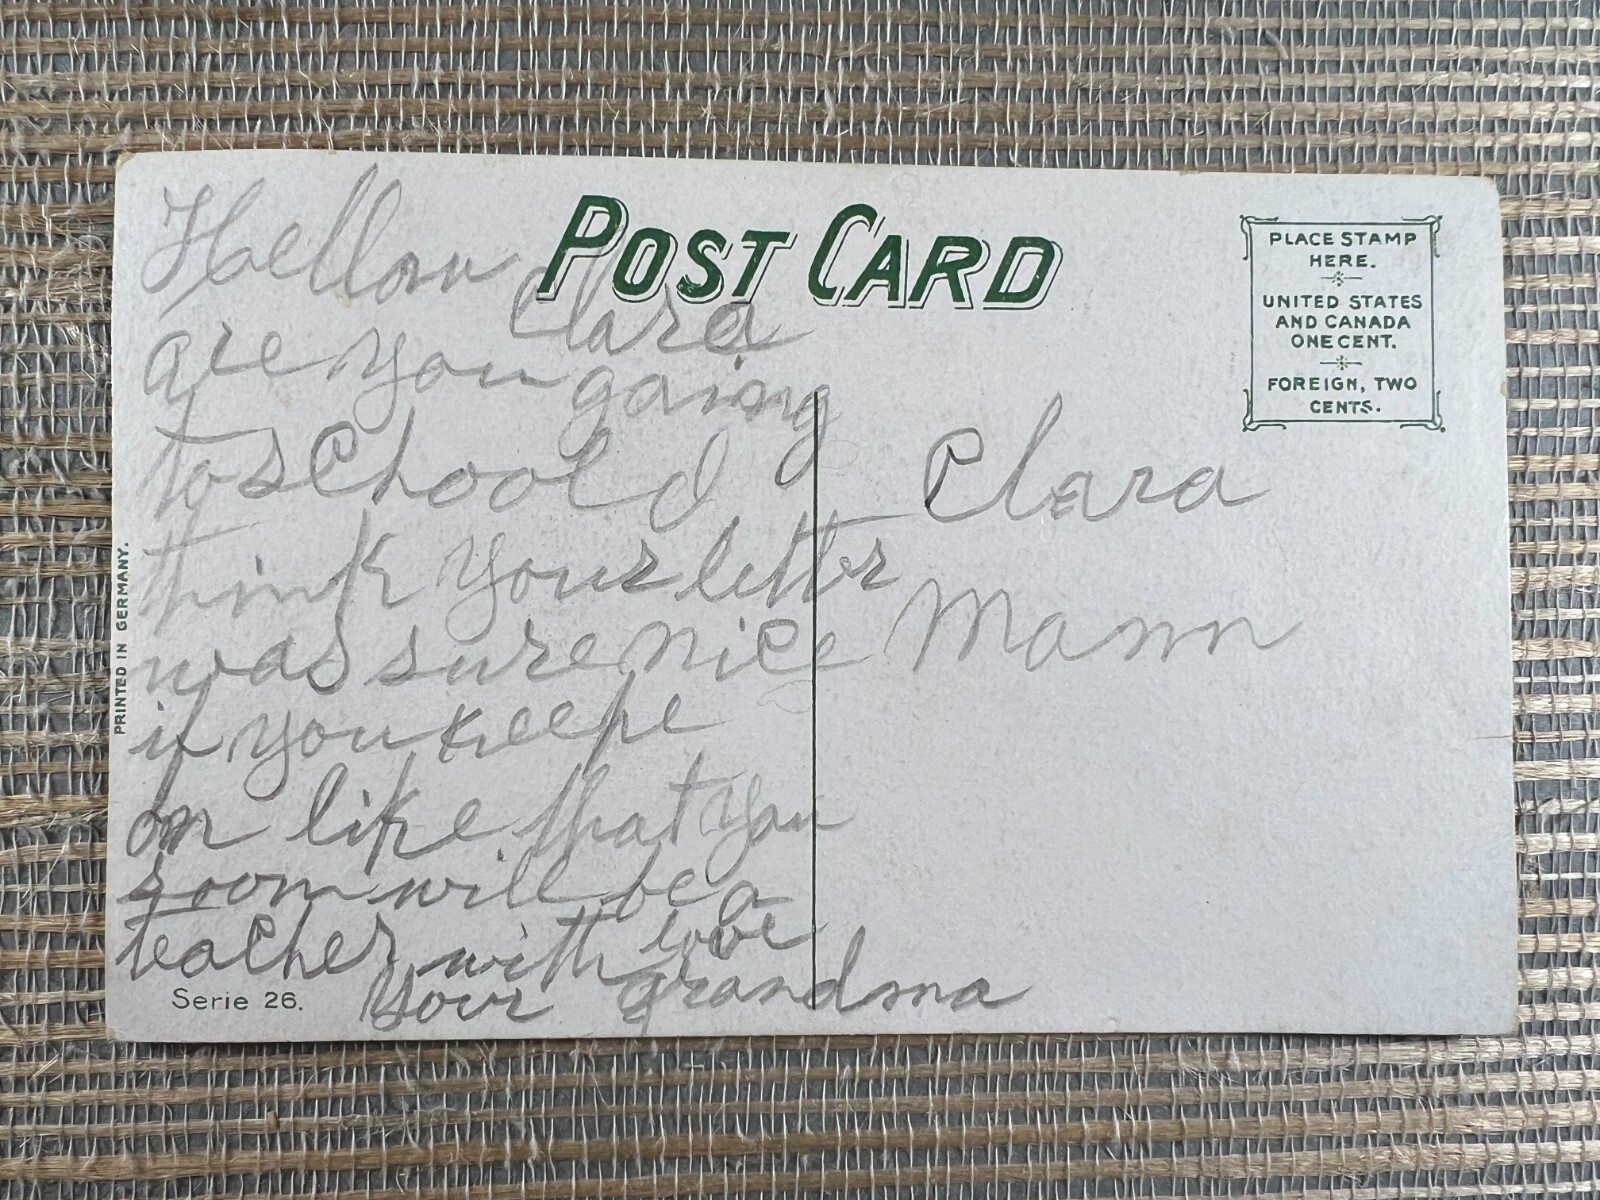 POST CARD
PLACE STAMP
HERE.
UNITED STATES
AND CANADA
ONE CENT.
FOREIGN, TWO
CENTS.
Hellow
Clara
are you going
to school I
think your letter
was sure nice
if you keepe
on like that you
soom will be a
teacher with love
Your grandma
Clara
Mann
PRINTED IN GERMANY.
Serie 26.